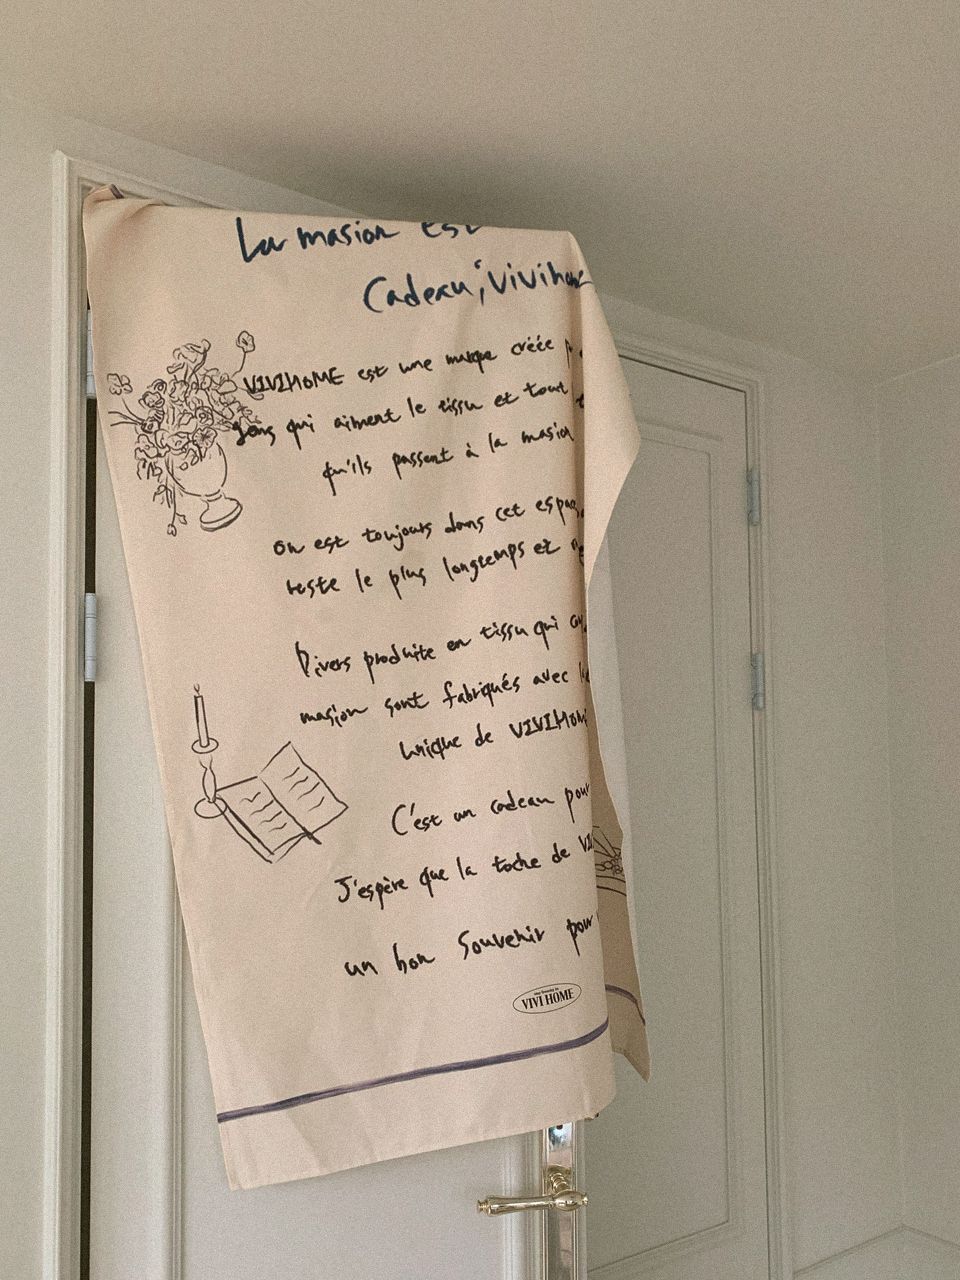 La masion est
Cadeau, vivihome
VIVIHOME est une marque créée
gens qui aiment le tissu et tout
qu'ils passent à la masion
on est toujours dans cet espa
reste le plus longtemps et
Divers produite en tissu qui
masion sont fabriqués avec
unique de VIVIHOM
C'est un cadeau pour
J'espère que la toche de VI
un bon souvenir pour
VIVI HOME